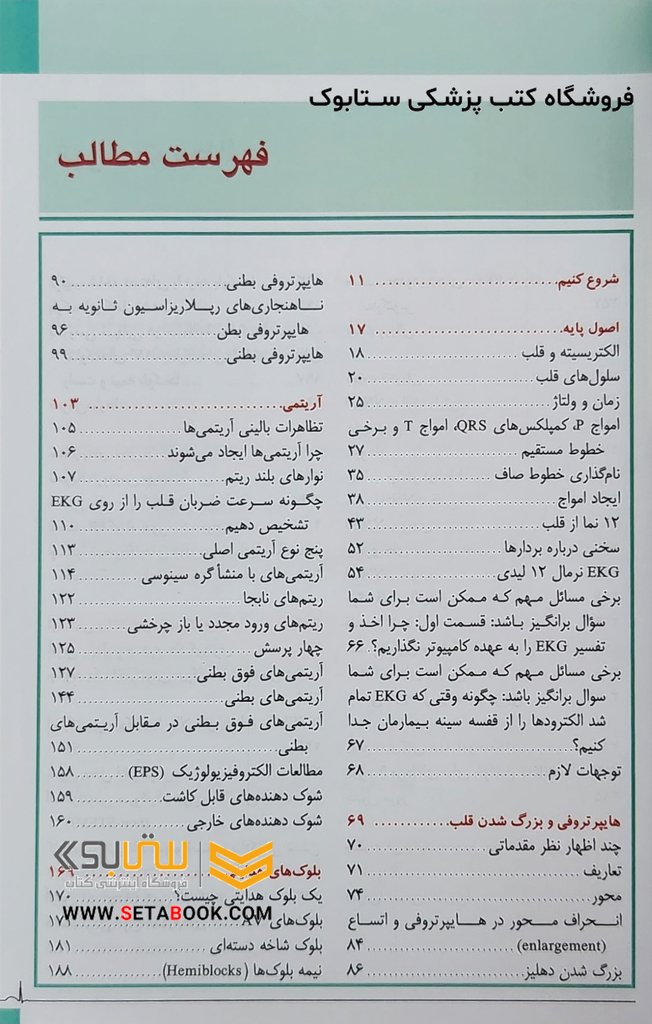 فروشگاه کتب پزشکی ستابوک
فهرست مطالب
شروع کنیم............................ ۱۱
اصول پایه............................ ۱۷
الکتریسیته و قلب............................ ۱۸
سلول‌های قلب............................ ۲۰
زمان و ولتاژ............................ ۲۵
امواج P، کمپلکس‌های QRS، امواج T و برخی
خطوط مستقیم............................ ۲۷
نام‌گذاری خطوط صاف............................ ۳۵
ایجاد امواج............................ ۳۸
۱۲ نما از قلب............................ ۴۳
سخنی درباره بردارها............................ ۵۲
EKG نرمال ۱۲ لیدی............................ ۵۴
برخی مسائل مهم که ممکن است برای شما
سؤال برانگیز باشد: قسمت اول: چرا اخذ و
تفسیر EKG را به عهده کامپیوتر نگذاریم؟. ۶۶
برخی مسائل مهم که ممکن است برای شما
سوال برانگیز باشد: چگونه وقتی که EKG تمام
شد الکترودها را از قفسه سینه بیمارمان جدا
کنیم؟............................ ۶۷
توجهات لازم............................ ۶۸
هایپرتروفی و بزرگ شدن قلب............ ۶۹
چند اظهار نظر مقدماتی............................ ۷۰
تعاریف............................ ۷۱
محور............................ ۷۴
انحراف محور در هایپرتروفی و اتساع
(enlargement)............................ ۸۴
بزرگ شدن دهلیز............................ ۸۶
هایپرتروفی بطنی............................ ۹۰
ناهنجاری‌های رپلاریزاسیون ثانویه به
هایپرتروفی بطن............................ ۹۶
هایپرتروفی بطنی............................ ۹۹
آریتمی............................ ۱۰۳
تظاهرات بالینی آریتمی‌ها............................ ۱۰۵
چرا آریتمی‌ها ایجاد می‌شوند............................ ۱۰۶
نوارهای بلند ریتم............................ ۱۰۷
چگونه سرعت ضربان قلب را از روی EKG
تشخیص دهیم............................ ۱۱۰
پنج نوع آریتمی اصلی............................ ۱۱۳
آریتمی‌های با منشأ گره سینوسی............ ۱۱۴
ریتم‌های نابجا............................ ۱۲۲
ریتم‌های ورود مجدد یا باز چرخشی............ ۱۲۳
چهار پرسش............................ ۱۲۵
آریتمی‌های فوق بطنی............................ ۱۲۷
آریتمی‌های بطنی............................ ۱۴۴
آریتمی‌های فوق بطنی در مقابل آریتمی‌های
بطنی............................ ۱۵۱
مطالعات الکتروفیزیولوژیک (EPS)......... ۱۵۸
شوک دهنده‌های قابل کاشت............................ ۱۵۹
شوک دهنده‌های خارجی............................ ۱۶۰
بلوک‌های
یک بلوک هدایتی چیست؟............ ۱۷۰
بلوک‌های AV............ ۱۷۱
بلوک شاخه دسته‌ای............................ ۱۸۱
نیمه بلوک‌ها (Hemiblocks)............ ۱۸۸
ستابوک
فروشگاه اینترنتی کتاب
WWW.SETABOOK.COM